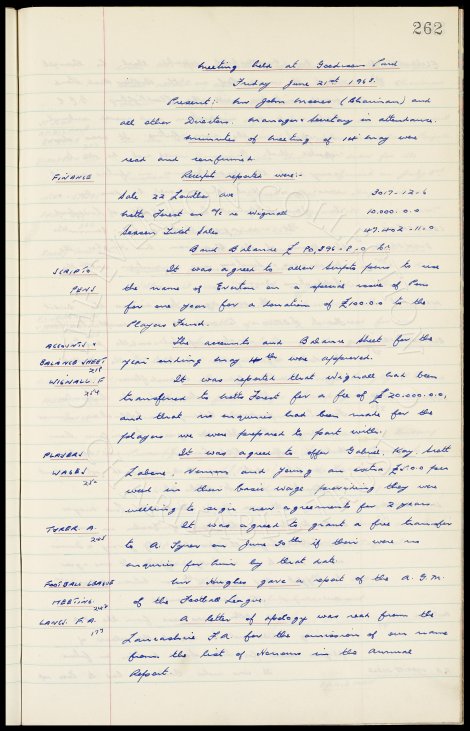 262
Meeting held at Goodison Park
Friday June 21st 1968.
Present:- Mr John Moores (Chairman) and
all other Directors. Manager & Secretary in attendance.
Minutes of meeting of 14 May were
read and confirmed.
FINANCE Receipts reported were:-
Sale 22 Lowther Ave 3017-12-6
Notts Forest on a/c re Wignall 10,000.0.0
Season Ticket Sales 47,402-11-0
Bank Balance £ 80,396-8-0 Cr.
SCRIPTO It was agreed to allow Scripto pens to use
PENS the name of Everton on a special issue of Pens
for one year for a donation of £100.0.0 to the
Players Fund.
ACCOUNTS & The accounts and Balance Sheet for the
BALANCE SHEET year ending May were approved.
258
WIGNALL. F It was reported that Wignall had been
254
transferred to Notts Forest for a fee of £20.000.0.0,
and that no enquiries had been made for the
players we were prepared to part with.
PLAYERS It was agreed to offer Gabriel, Kay, Scott
WAGES Labone, Vernon and Young an extra £5.0.0 per
252
week in their basic wage providing they were
willing to sign new agreements for 2 years.
TYRER. A. It was agreed to grant a free transfer
245
to A. Tyrer on June 30th if there were no
enquiries for him by that date.
FOOTBALL LEAGUE Mr Hughes gave a report of the A.G.M.
MEETING. of the Football League.
247
LANCS. F.A. A letter of apology was read from the
177
Lancashire F.A for the omission of our name
from the list of Honours in the Annual
Report.